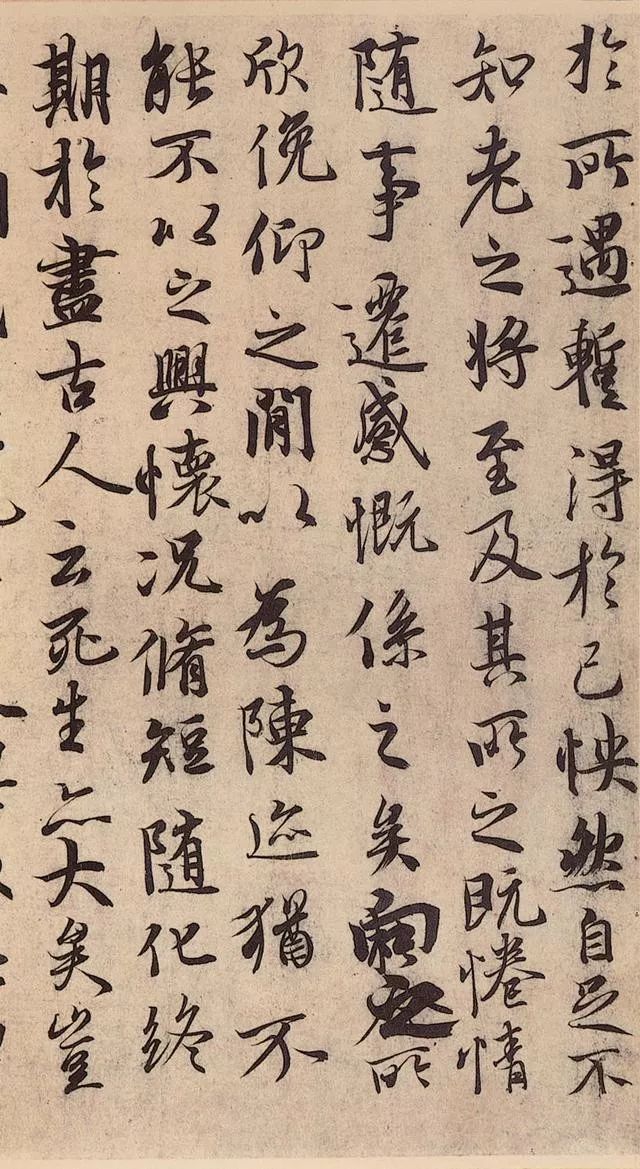 於所遇暫得於己怏然自足不
知老之将至及其所之既惓情
随事遷感慨係之矣向之所
欣俛仰之閒以為陳迹猶不
能不以之興懷况脩短随化終
期於盡古人云死生亦大矣豈